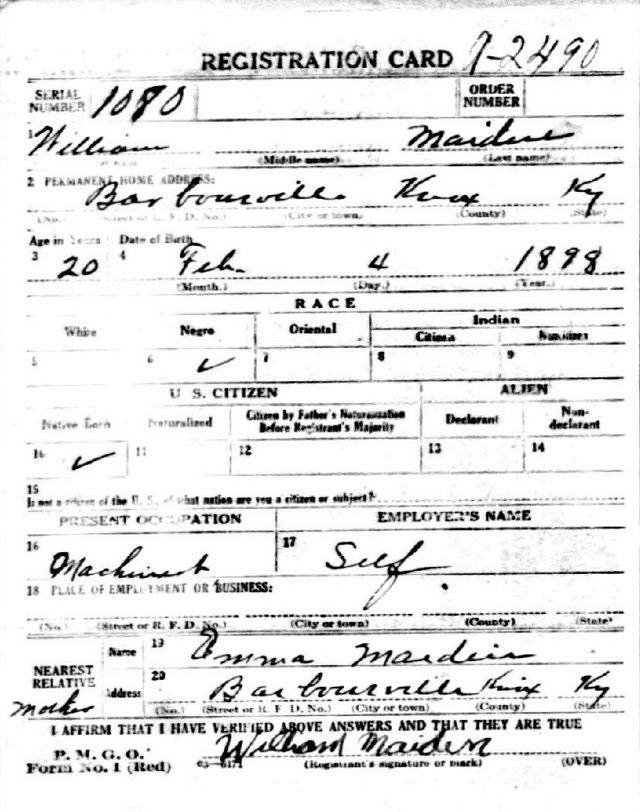 REGISTRATION CARD
SERIAL NUMBER 1080 ORDER NUMBER
1 William Maiden
(Middle name) (Last name)
2 PERMANENT HOME ADDRESS:
Barbourville Knox Ky
(No.) (Street or R. F. D. No.) (City or town) (County) (State)
Age in Years Date of Birth
3 20 4 Feb. 4 1898
(Month.) (Day.) (Year.)
RACE
White Negro Oriental Indian
Citizen Noncitizen
5 6 ✓ 7 8 9
U. S. CITIZEN ALIEN
Native Born Naturalized Citizen by Father's Naturalization Before Registrant's Majority Declarant Non-declarant
10 ✓ 11 12 13 14
15
If not a citizen of the U. S., of what nation are you a citizen or subject?
PRESENT OCCUPATION EMPLOYER'S NAME
16 Machinest 17 Self
18 PLACE OF EMPLOYMENT OR BUSINESS:
(No.) (Street or R. F. D. No.) (City or town) (County) (State)
NEAREST RELATIVE Name 19 Emma Maiden
Mother Address 20 Barbourville Knox Ky
(No.) (Street or R. F. D. No.) (City or town) (County) (State)
I AFFIRM THAT I HAVE VERIFIED ABOVE ANSWERS AND THAT THEY ARE TRUE
P. M. G. O. William Maiden
Form No. 1 (Red) 03—6171 (Registrant's signature or mark) (OVER)